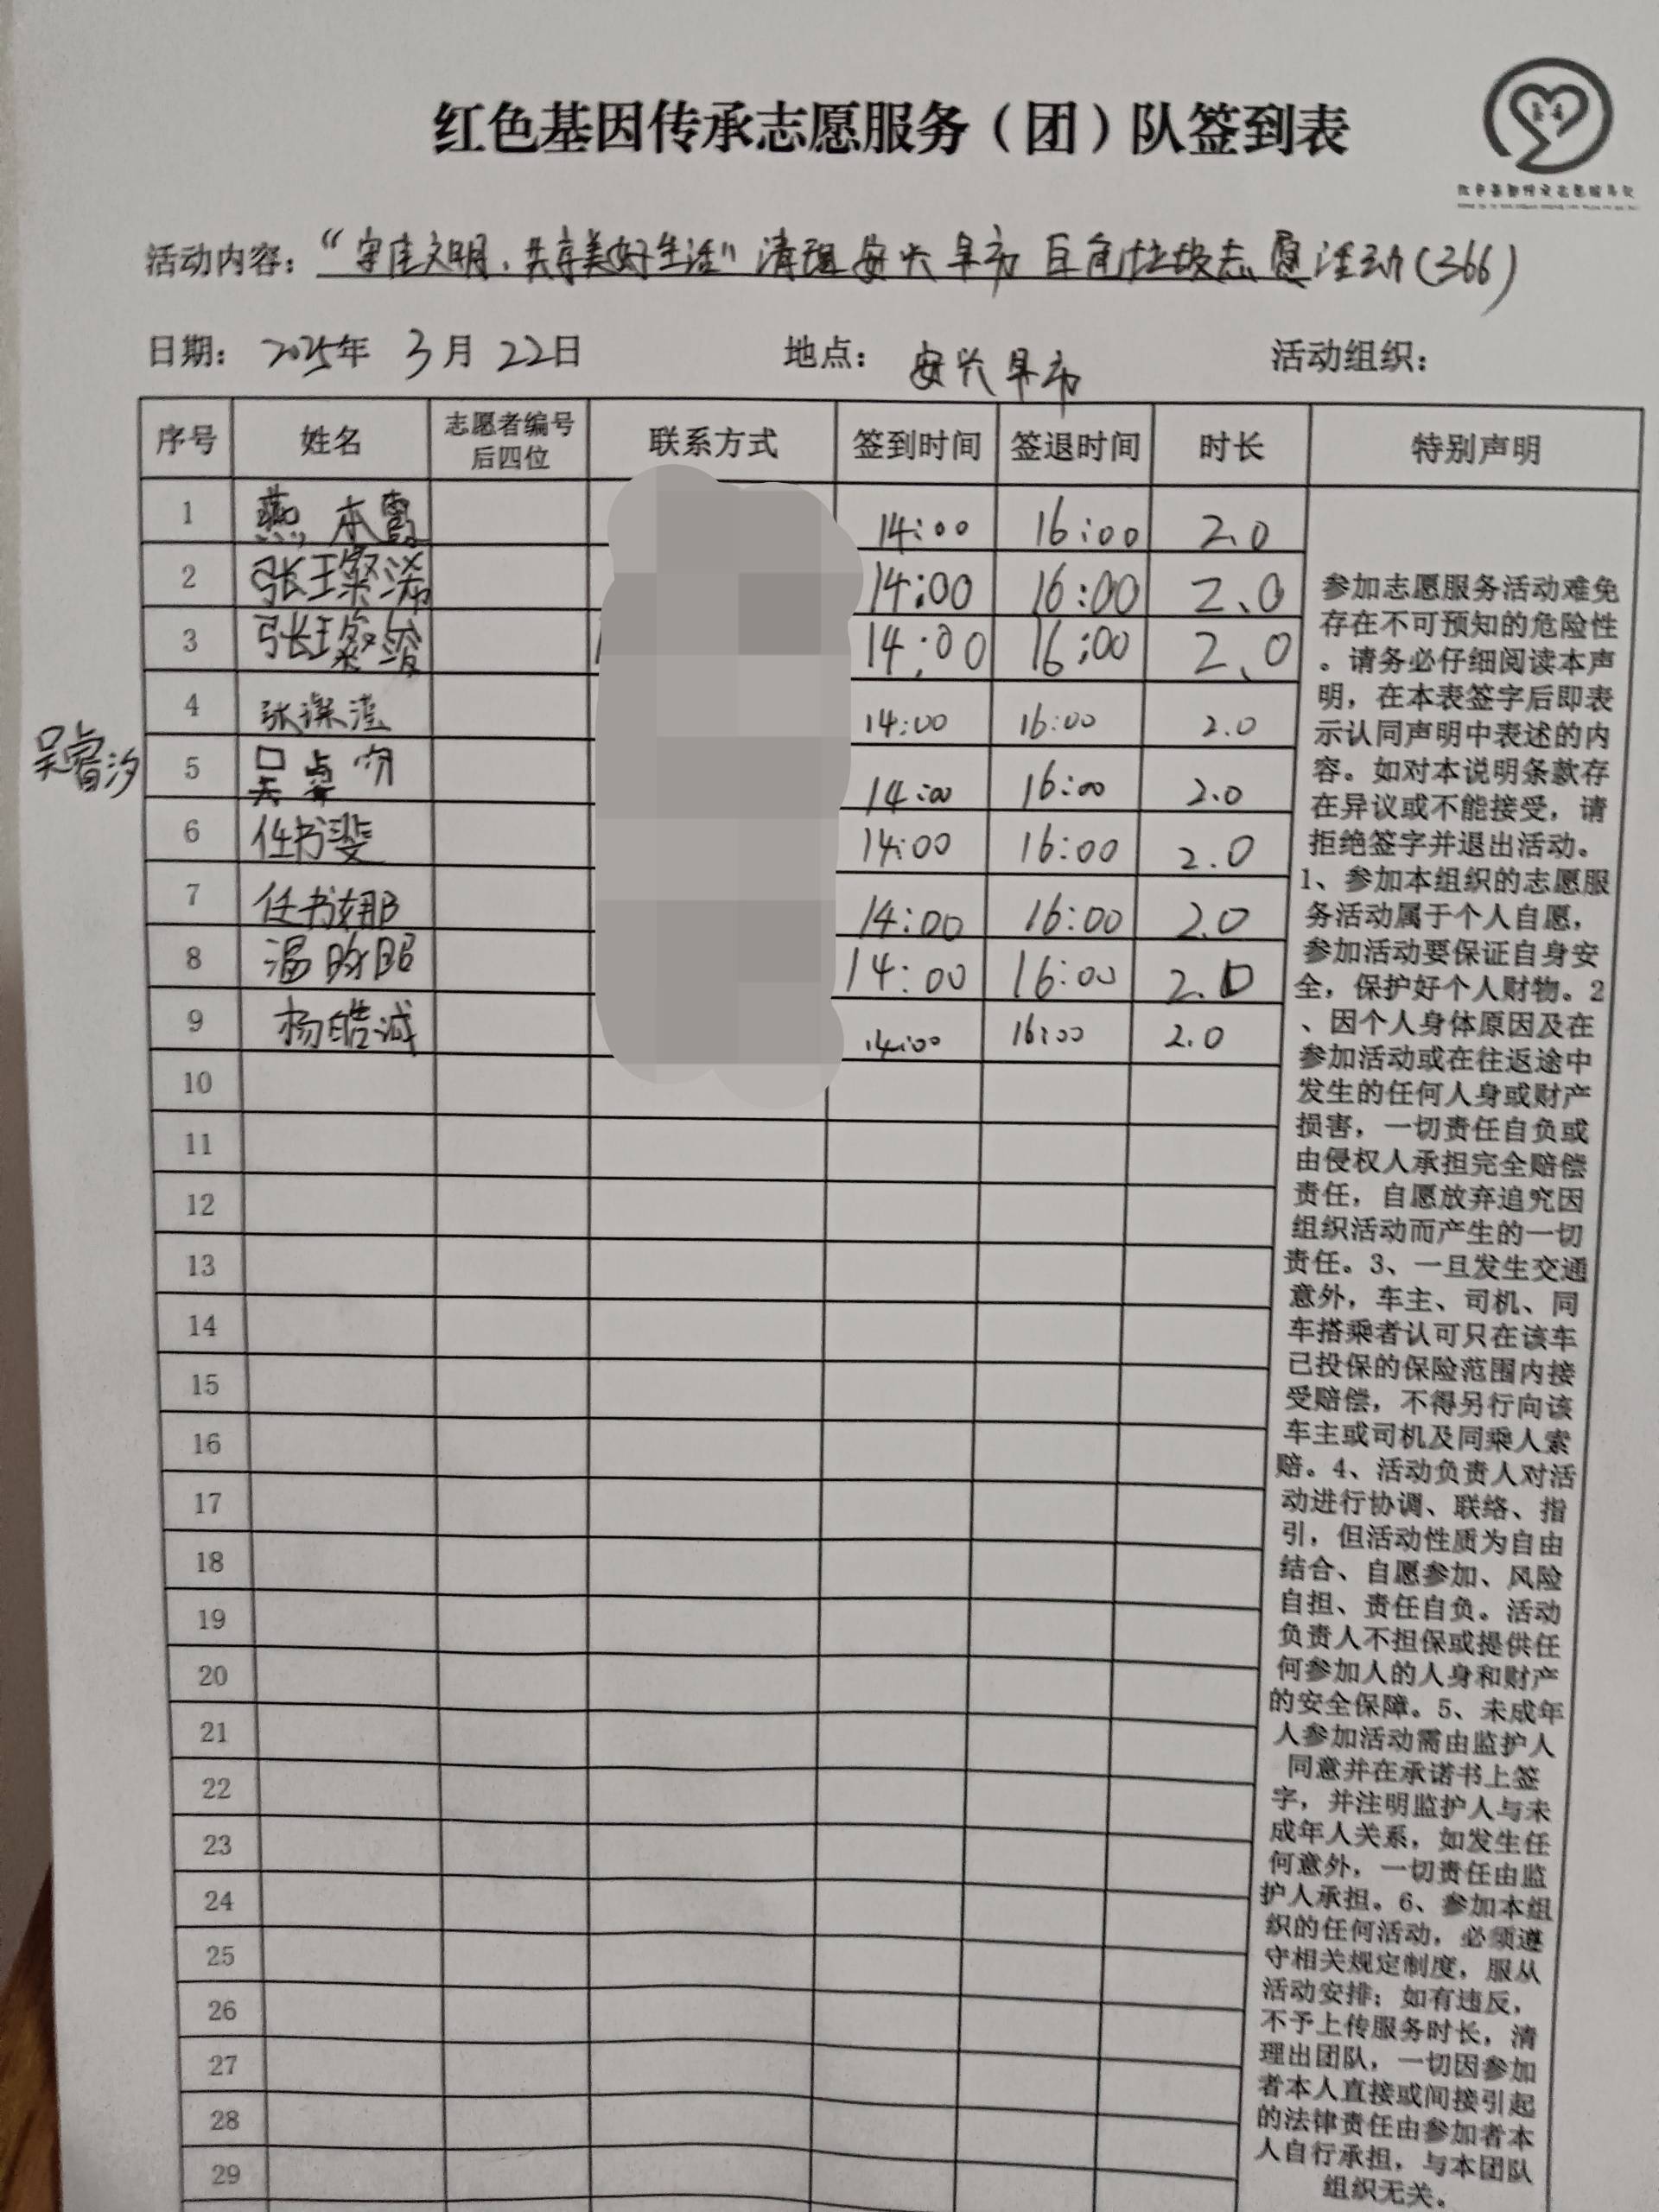 红色基因传承志愿服务（团）队签到表
活动内容：“守住文明，共享美好生活”清理安兴早市白色垃圾志愿活动（366）
日期：2025年 3月22日 地点：安兴早市 活动组织：
序号 姓名 志愿者编号后四位 联系方式 签到时间 签退时间 时长 特别声明
1 燕本 14:00 16:00 2.0
2 张璨浠 14:00 16:00 2.0
3 张璨 14:00 16:00 2.0
4 张 14:00 16:00 2.0
吴睿汐
5 吴卓 14:00 16:00 2.0
6 任书斐 14:00 16:00 2.0
7 任书娜 14:00 16:00 2.0
8 温昭 14:00 16:00 2.0
9 杨皓诚 14:00 16:00 2.0
10
11
12
13
14
15
16
17
18
19
20
21
22
23
24
25
26
27
28
29
参加志愿服务活动难免
存在不可预知的危险性
。请务必仔细阅读本声
明，在本表签字后即表
示认同声明中表述的内
容。如对本说明条款存
在异议或不能接受，请
拒绝签字并退出活动。
1、参加本组织的志愿服
务活动属于个人自愿，
参加活动要保证自身安
全，保护好个人财物。2
、因个人身体原因及在
参加活动或在往返途中
发生的任何人身或财产
损害，一切责任自负或
由侵权人承担完全赔偿
责任，自愿放弃追究因
组织活动而产生的一切
责任。3、一旦发生交通
意外，车主、司机、同
车搭乘者认可只在该车
已投保的保险范围内接
受赔偿，不得另行向该
车主或司机及同乘人索
赔。4、活动负责人对活
动进行协调、联络、指
引，但活动性质为自由
结合、自愿参加、风险
自担、责任自负。活动
负责人不担保或提供任
何参加人的人身和财产
的安全保障。5、未成年
人参加活动需由监护人
同意并在承诺书上签
字，并注明监护人与未
成年人关系，如发生任
何意外，一切责任由监
护人承担。6、参加本组
织的任何活动，必须遵
守相关规定制度，服从
活动安排；如有违反，
不予上传服务时长，清
理出团队，一切因参加
者本人直接或间接引起
的法律责任由参加者本
人自行承担，与本团队
组织无关。